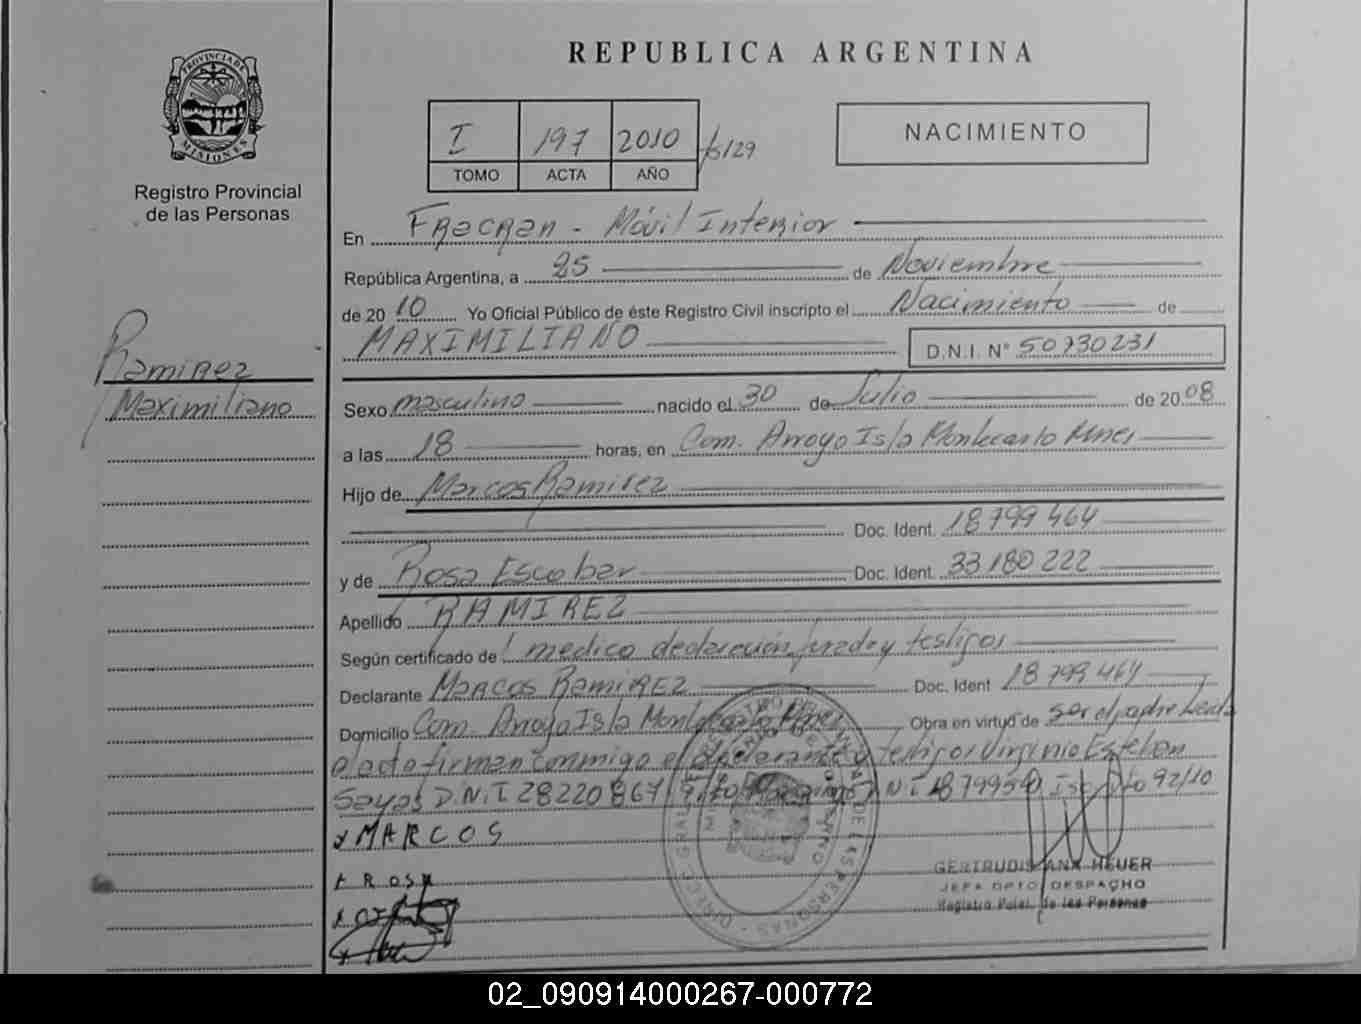 REPUBLICA ARGENTINA
PROVINCIA DE
MISIONES
Registro Provincial
de las Personas
I 197 2010
TOMO ACTA AÑO
NACIMIENTO
Ramirez
Maximiliano
En Fracran - Móvil Interior
República Argentina, a 25 de Noviembre
de 20 10 Yo Oficial Público de éste Registro Civil inscripto el Nacimiento de
MAXIMILIANO D.N.I. N° 50730231
Sexo masculino nacido el 30 de Julio de 20 08
a las 18 horas, en Com. Arroyo Isla Montecarlo Mnes
Hijo de Marcos Ramirez
Doc. Ident. 18799464
y de Rosa Escobar Doc. Ident. 33180222
Apellido RAMIREZ
Según certificado de medico declaración jurada y testigos
Declarante Marcos RAMIREZ Doc. Ident 18799464
Domicilio Com. Arroyo Isla Montecarlo Mnes Obra en virtud de ser el padre Leida
el acta firman conmigo el declarante y testigos Virginio Esteban
Sayas D.N.I 28220867 D.N.I 92/10
x MARCOS
x ROSA
GERTRUDIS ANA HEUER
JEFA DPTO DESPACHO
Registro Pcial. de las Personas
02_090914000267-000772